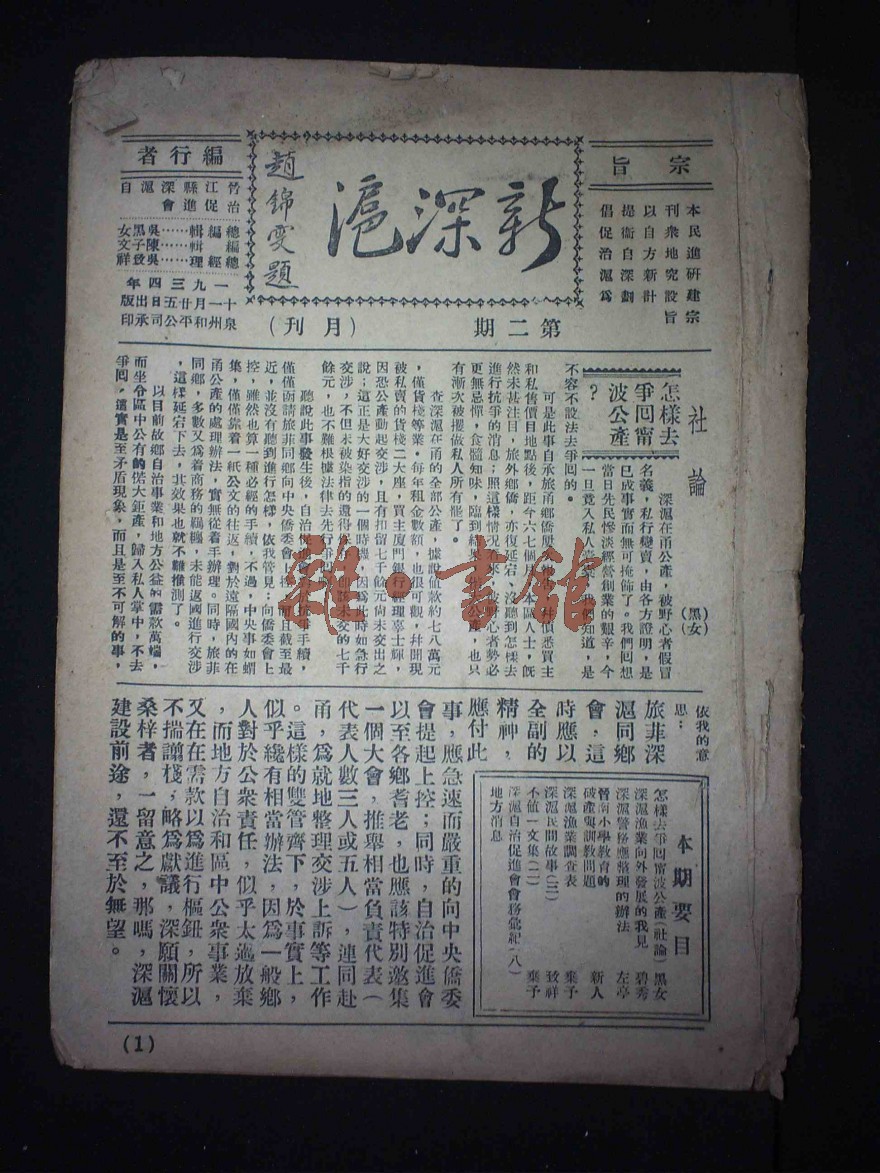 宗旨
本刊以提倡
民眾自衛促
進地方自治
研究新深滬
建設計劃為
宗旨
新深滬
趙錦雯題
第二期
(月刊)
編行者
晉江縣深滬自
治促進會
總編輯……吳黑女
編輯……陳子文
總經理……吳致祥
一九三四年
十一月廿五日出版
泉州和平公司承印
社論
怎樣去
爭回甯
波公產
?
(黑女)
深滬在甬公產,被野心者假冒
名義,私行變賣,由各方證明,是
已成事實而無可掩飾了。我們回想
當日先民慘淡經營創業的艱辛,今
一旦竟入私人
我們知道,是
不容不設法去爭回的。
可是此事自承旅甬鄉僑
悉買主
和私售價目地點後,距今六七個月
本區人士,既
然未甚注目,旅外鄉僑,亦復延宕,沒聽到怎樣去
進行抗爭的消息;照這樣情況看來,被野心者勢必
更無忌憚,食髓知味,臨到
產,也只
有漸次被攫做私人所有罷了。
查深滬在甬的全部公產,據說值款約七八萬元
,僅貨棧等業,每年租金數額,也很可觀,并開現
被私賣的貨棧二大座,買主廈門銀行經理辜士輝,
因恐公產動起交涉,且有扣留七千餘元尚未交出之
說;這正是大好交涉的一個時機,因為此時如急行
交涉,不但未被染指的還得
即該未交的七千
餘元,也不難根據法律去先行爭回
聽說此事發生後,自治促進會
手續,
僅僅函請旅菲同鄉向中央僑委會上控,而且截至最
近,並沒有聽到進行怎樣,依我管見;向僑委會上
控,雖然也算一種必經的手續,不過,中央事如蝟
集,僅僅靠着一紙公文的往返,對於遠隔國內的在
甬公產的處理辦法,實無從着手辦理。同時,旅菲
同鄉,多數又為着商務的羈絆,未能返國進行交涉
,這樣延宕下去,北效果也就不難推測了。
以目前故鄉自治事業和地方公益的需款萬端,
而坐令區中公有的偌大鉅產,歸入私人掌中,不去
爭回,這實是至矛盾現象,而且是至不可解的事,
依我的意
思;
旅菲深
滬同鄉
會,這
時應以
全副的
精神,
應付此
事,應急速而嚴重的向中央僑委
會提起上控;同時,自治促進會
以至各鄉耆老,也應該特別邀集
一個大會,推舉相當負責代表(
代表人數三人或五人),連同赴
甬,為就地整理交涉上訴等工作
。這樣的雙管齊下,於事實上,
似乎纔有相當辦法,因為一般鄉
人對於公眾責任,似乎太過放棄
,而地方自治和區中公眾事業,
又在在需款以為進行樞鈕,所以
不揣譾棧,略為獻議,深願關懷
桑梓者,一留意之,那嗎,深滬
建設前途,還不至於無望。
本期要目
怎樣去爭回甯波公產(社論) 黑女
深滬漁業向外發展的我見 碧秀
深滬警務應整理的辦法 左亭
晉南小學教育的
破產與訓教問題 新人
深滬漁業調查表 棄予
深滬民間故事(三) 致祥
不值一文集(二) 棄予
深滬自治促進會會務彙紀(八)
地方消息
(1)
雜·書館